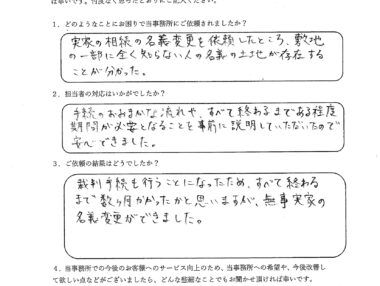 は幸いです。忖度なく思ったとおりにご記入ください。
1．どのようなことにお困りで当事務所にご依頼されましたか？
実家の相続の名義変更を依頼したところ、敷地
の一部に全く知らない人の名義の土地が存在する
ことが分かった。
2．担当者の対応はいかがでしたか？
手続のおおまかな流れや、すべて終わるまである程度
期間が必要となることを事前に説明していただいたので
安心できました。
3．ご依頼の結果はどうでしたか？
裁判手続も行うことになったため、すべて終わる
まで数ヶ月かかったかと思いまるが、無事実家の
名義変更ができました。
4．当事務所での今後のお客様へのサービス向上のため、当事務所への希望や、今後改善し
て欲しい点などがございましたら、どんな些細なことでもお聞かせ頂ければ幸いです。